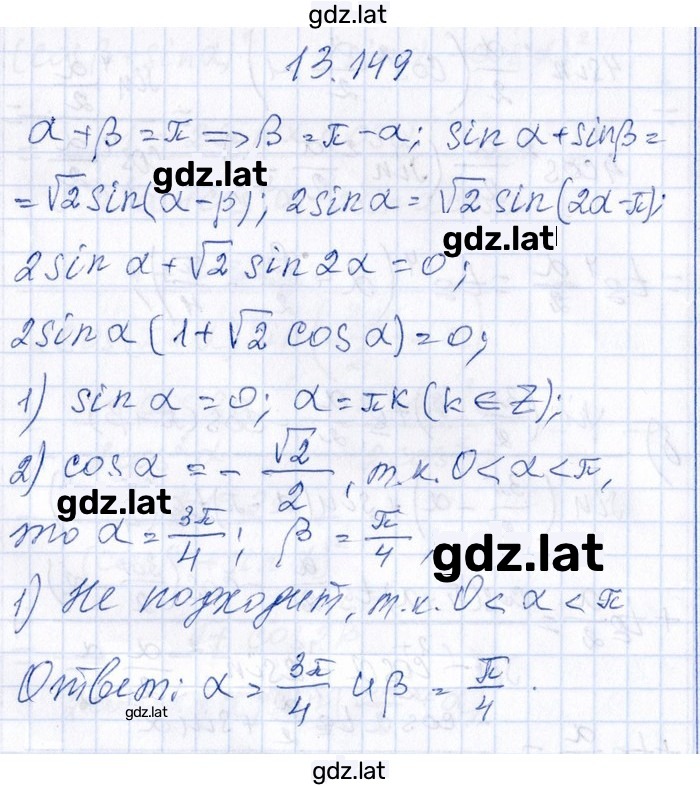 gdz.lat
13.149
α+β=π=>β=π-α; sin α+sinβ=
gdz.lat
=√2 sin(α-β); 2sin α=√2 sin(2α-π);
gdz.lat
2sin α+√2 sin 2α=0;
2sin α(1+√2 cos α)=0;
1) sin α=0; α=πk(k∈Z);
2) cos α=-√2/2, т.к. 0<α<π,
gdz.lat
то α=3π/4; β=π/4,
gdz.lat
1) Не подходит, т.к. 0<α<π
Ответ: α=3π/4 и β=π/4.
gdz.lat
gdz.lat